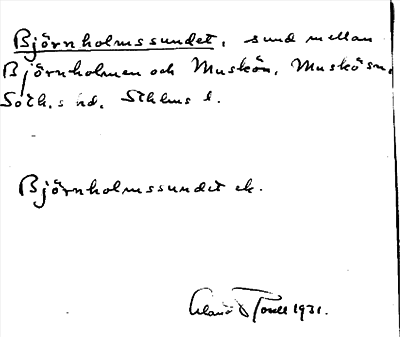 Björnholmssundet, sund mellan
Björnholmen och Muskön, Muskö sn,
Soth.s hd. Sthlms l.
Björnholmssundet ek.
1931.